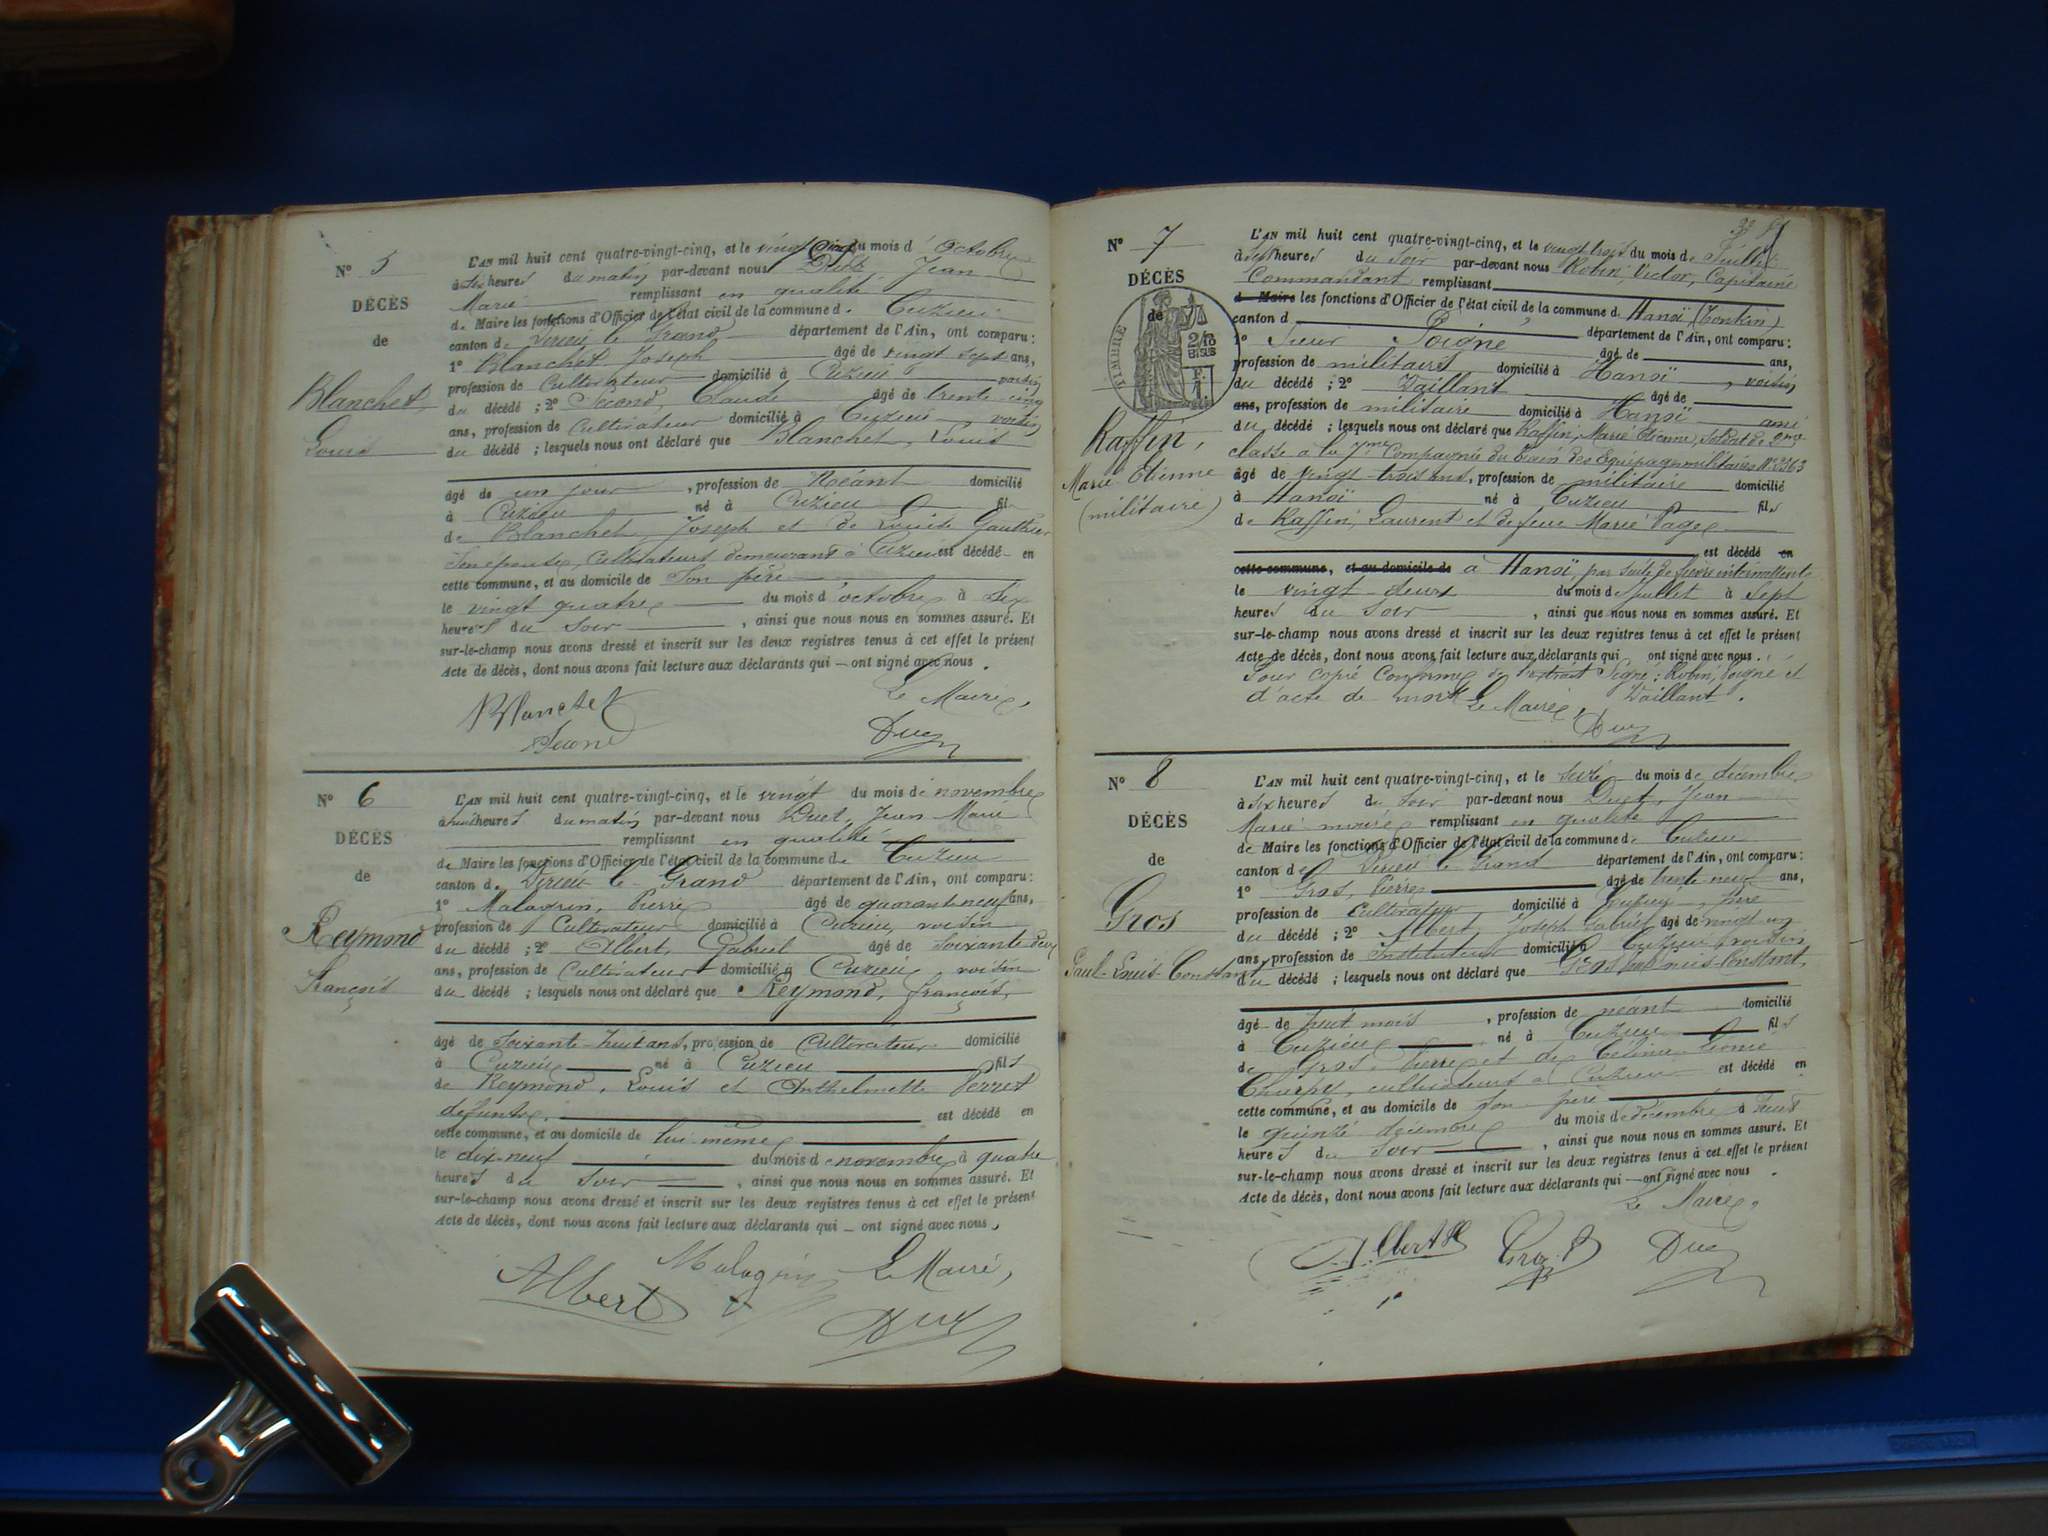 N° 5
DÉCÈS
de
Blanchet
Louis
L'AN mil huit cent quatre-vingt-cinq, et le vingt cinq du mois d'octobre
à six heures du matin par-devant nous Duet Jean
Marie remplissant en qualité
de Maire les fonctions d'Officier de l'état civil de la commune de Cuzieu
canton de Virieu le Grand département de l'Ain, ont comparu :
1° Blanchet Joseph âgé de vingt sept ans,
profession de Cultivateur domicilié à Cuzieu voisin
du décédé ; 2° Second, Claude âgé de trente-cinq
ans, profession de Cultivateur domicilié à Cuzieu, voisin
du décédé ; lesquels nous ont déclaré que Blanchet, Louis
âgé de un jour, profession de Néant domicilié
à Cuzieu né à Cuzieu fils
de Blanchet, Joseph et de Louise Gauthier
Son épouse, cultivateurs demeurant à Cuzieu est décédé en
cette commune, et au domicile de Son père
le vingt quatre du mois d'octobre à six
heures du Soir, ainsi que nous nous en sommes assuré. Et
sur-le-champ nous avons dressé et inscrit sur les deux registres tenus à cet effet le présent
Acte de décès, dont nous avons fait lecture aux déclarants qui ont signé avec nous.
Le Maire,
Blanchet
Second
Duet
N° 6
DÉCÈS
de
Reymond
François
L'AN mil huit cent quatre-vingt-cinq, et le vingt du mois de novembre
à huit heures du matin par-devant nous Duet, Jean Marie
remplissant en qualité
de Maire les fonctions d'Officier de l'état civil de la commune de Cuzieu
canton de Virieu le Grand département de l'Ain, ont comparu :
1° Malogrin, Pierre âgé de quarante neuf ans,
profession de Cultivateur domicilié à Cuzieu, voisin
du décédé ; 2° Albert, Gabriel âgé de Soixante deux
ans, profession de Cultivateur domicilié à Cuzieu, voisin
du décédé ; lesquels nous ont déclaré que Reymond, françois,
âgé de Soixante-huit ans, profession de Cultivateur domicilié
à Cuzieu né à Cuzieu fils
de Reymond, Louis et Anthelmette Perret
défunts. est décédé en
cette commune, et au domicile de lui même
le dix-neuf du mois de novembre à quatre
heures du Soir, ainsi que nous nous en sommes assuré. Et
sur-le-champ nous avons dressé et inscrit sur les deux registres tenus à cet effet le présent
Acte de décès, dont nous avons fait lecture aux déclarants qui ont signé avec nous,
Malogrin Le Maire,
Albert Duet
N° 7
DÉCÈS
de
TIMBRE
2/10
EN SUS
F.
1.
Raffin,
Marie Etienne
(militaire)
L'AN mil huit cent quatre-vingt-cinq, et le vingt trois du mois de Juillet
à Sept heures du Soir par-devant nous Robin, Victor, Capitaine
Commandant remplissant
d Maire les fonctions d'Officier de l'état civil de la commune d Hanoï (Tonkin)
canton d département de l'Ain, ont comparu :
1° Sieur Poigné âgé de ans,
profession de militaire domicilié à Hanoï, voisin
du décédé ; 2° Vaillant âgé de
ans, profession de militaire domicilié à Hanoï ami
du décédé ; lesquels nous ont déclaré que Raffin, Marie Etienne, Soldat de 2me
classe à la 7me Compagnie du train des Equipages militaires N° 2363
âgé de vingt-trois ans, profession de militaire domicilié
à Hanoï né à Cuzieu fils
de Raffin, Laurent et de feue Marie Page
est décédé en
cette commune, et au domicile de à Hanoï, par suite de fièvre intermittente
le vingt-deux du mois de Juillet à Sept
heures du Soir, ainsi que nous nous en sommes assuré. Et
sur-le-champ nous avons dressé et inscrit sur les deux registres tenus à cet effet le présent
Acte de décès, dont nous avons fait lecture aux déclarants qui ont signé avec nous.
Pour copie conforme de l'extrait Signé : Robin, Poigné et
d'acte de mort Le Maire, Vaillant.
Duet
N° 8
DÉCÈS
de
Gros
Paul-Louis-Constant
L'AN mil huit cent quatre-vingt-cinq, et le seize du mois de décembre
à six heures du Soir par-devant nous Duet, Jean
Marie maire remplissant en qualité
de Maire les fonctions d'Officier de l'état civil de la commune de Cuzieu
canton de Virieu le Grand département de l'Ain, ont comparu :
1° Gros, Pierre âgé de trente neuf ans,
profession de Cultivateur domicilié à Cuzieu, père
du décédé ; 2° Albert, Joseph Gabriel âgé de vingt un
ans, profession de Instituteur domicilié à Cuzieu, voisin
du décédé ; lesquels nous ont déclaré que Gros Paul-Louis-Constant,
âgé de huit mois, profession de néant domicilié
à Cuzieu né à Cuzieu fils
de Gros, Pierre et de Céline Léonie
Charpy, cultivateurs à Cuzieu est décédé en
cette commune, et au domicile de Son père
le quinze décembre du mois de décembre à
heures du Soir, ainsi que nous nous en sommes assuré. Et
sur-le-champ nous avons dressé et inscrit sur les deux registres tenus à cet effet le présent
Acte de décès, dont nous avons fait lecture aux déclarants qui ont signé avec nous.
Le Maire,
Albert Gros P Duet